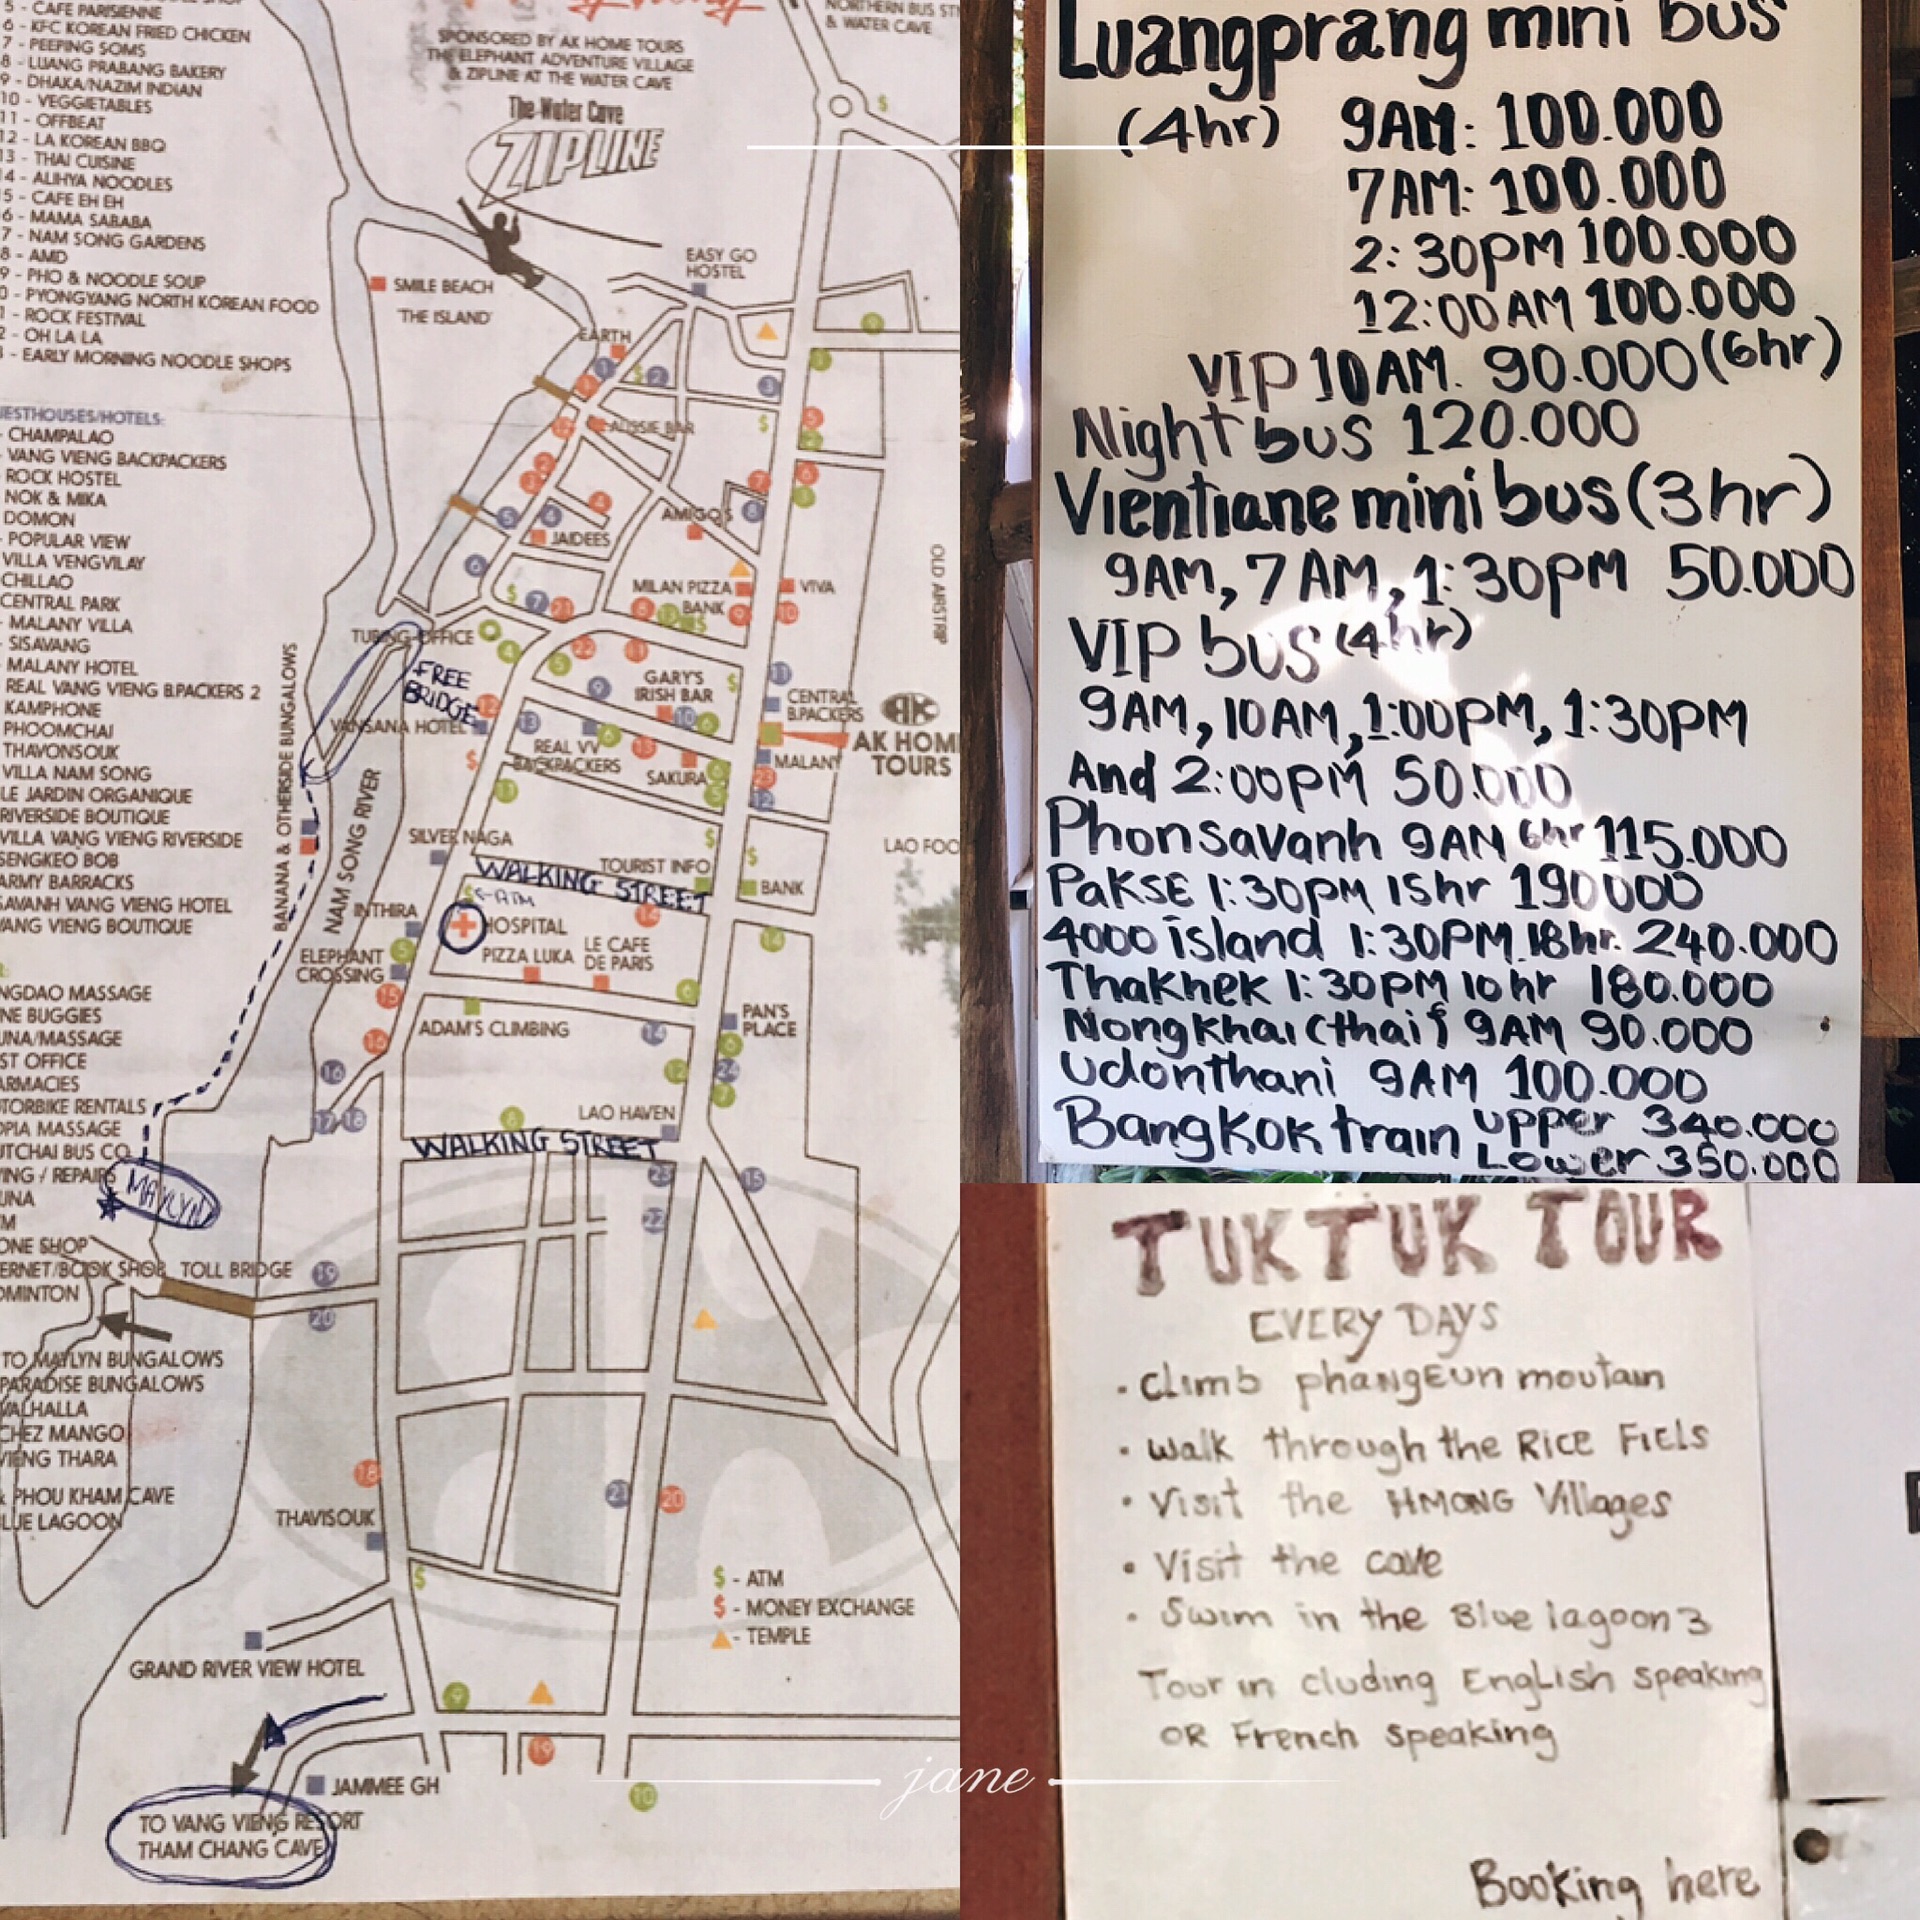 5 - CAFE PARISIENNE
6 - KFC KOREAN FRIED CHICKEN
7 - PEEPING SOMS
8 - LUANG PRABANG BAKERY
9 - DHAKA/NAZIM INDIAN
10 - VEGGIETABLES
11 - OFFBEAT
12 - LA KOREAN BBQ
13 - THAI CUISINE
14 - ALIHYA NOODLES
15 - CAFE EH EH
6 - MAMA SABABA
7 - NAM SONG GARDENS
8 - AMD
9 - PHO & NOODLE SOUP
0 - PYONGYANG NORTH KOREAN FOOD
1 - ROCK FESTIVAL
2 - OH LA LA
- EARLY MORNING NOODLE SHOPS
ESTHOUSES/HOTELS:
- CHAMPALAO
- VANG VIENG BACKPACKERS
ROCK HOSTEL
NOK & MIKA
DOMON
- POPULAR VIEW
VILLA VENGVILAY
CHILLAO
CENTRAL PARK
- MALANY VILLA
- SISAVANG
- MALANY HOTEL
- REAL VANG VIENG B.PACKERS 2
KAMPHONE
PHOOMCHAI
THAVONSOUK
VILLA NAM SONG
LE JARDIN ORGANIQUE
RIVERSIDE BOUTIQUE
VILLA VANG VIENG RIVERSIDE
SENGKEO BOB
ARMY BARRACKS
SAVANH VANG VIENG HOTEL
VANG VIENG BOUTIQUE
NGDAO MASSAGE
NE BUGGIES
UNA/MASSAGE
ST OFFICE
ARMACIES
TORBIKE RENTALS
OPIA MASSAGE
UTCHAI BUS CO
ING / REPAIRS
UNA
M
ONE SHOP
ERNET/BOOK SHOP
DMINTON
TO MAYLYN BUNGALOWS
PARADISE BUNGALOWS
VALHALLA
CHEZ MANGO
VIENG THARA
& PHOU KHAM CAVE
LUE LAGOON
SPONSORED BY AK HOME TOURS
THE ELEPHANT ADVENTURE VILLAGE
& ZIPLINE AT THE WATER CAVE
The Water Cave
ZIPLINE
NORTHERN BUS ST
& WATER CAVE
EASY GO
HOSTEL
SMILE BEACH
'THE ISLAND'
EARTH
AUSSIE BAR
AMIGO'S
JAIDEES
MILAN PIZZA
VIVA
BANK
OLD AIRSTRIP
TUBING OFFICE
FREE
BRIDGE
VANSANA HOTEL
GARY'S
IRISH BAR
CENTRAL
B.PACKERS
AK
AK HOM
TOURS
REAL VV
BACKPACKERS
SAKURA
MALANY
BANANA & OTHERSIDE BUNGALOWS
NAM SONG RIVER
SILVER NAGA
TOURIST INFO
LAO FOO
WALKING STREET
BANK
←ATM
INTHIRA
HOSPITAL
ELEPHANT
CROSSING
PIZZA LUKA
LE CAFE
DE PARIS
ADAM'S CLIMBING
PAN'S
PLACE
LAO HAVEN
WALKING STREET
MAYLYN
TOLL BRIDGE
THAVISOUK
$ - ATM
$ - MONEY EXCHANGE
- TEMPLE
GRAND RIVER VIEW HOTEL
JAMMEE GH
TO VANG VIENG RESORT
THAM CHANG CAVE
Luangprang mini bus
(4hr) 9AM: 100.000
7AM: 100.000
2:30PM 100.000
12:00AM 100.000
VIP 10AM. 90.000 (6hr)
Night bus 120.000
Vientiane mini bus (3hr)
9AM, 7AM, 1:30PM 50.000
VIP bus (4hr)
9AM, 10AM, 1:00PM, 1:30PM
And 2:00PM 50.000
Phonsavanh 9AM 6hr 115.000
Pakse 1:30PM 15hr 190000
4000 island 1:30PM 18hr. 240.000
Thakhek 1:30PM 10hr 180.000
Nongkhai (thai) 9AM 90.000
Udonthani 9AM 100.000
Bangkok train upper 340.000
Lower 350.000
TUKTUK TOUR
EVERY DAYS
• climb phangEun moutain
• walk through the RICE FIELS
• Visit the HMONG Villages
• Visit the cave
• Swim in the Blue lagoon 3
Tour in cluding English speaking
OR French speaking
Booking here
jane